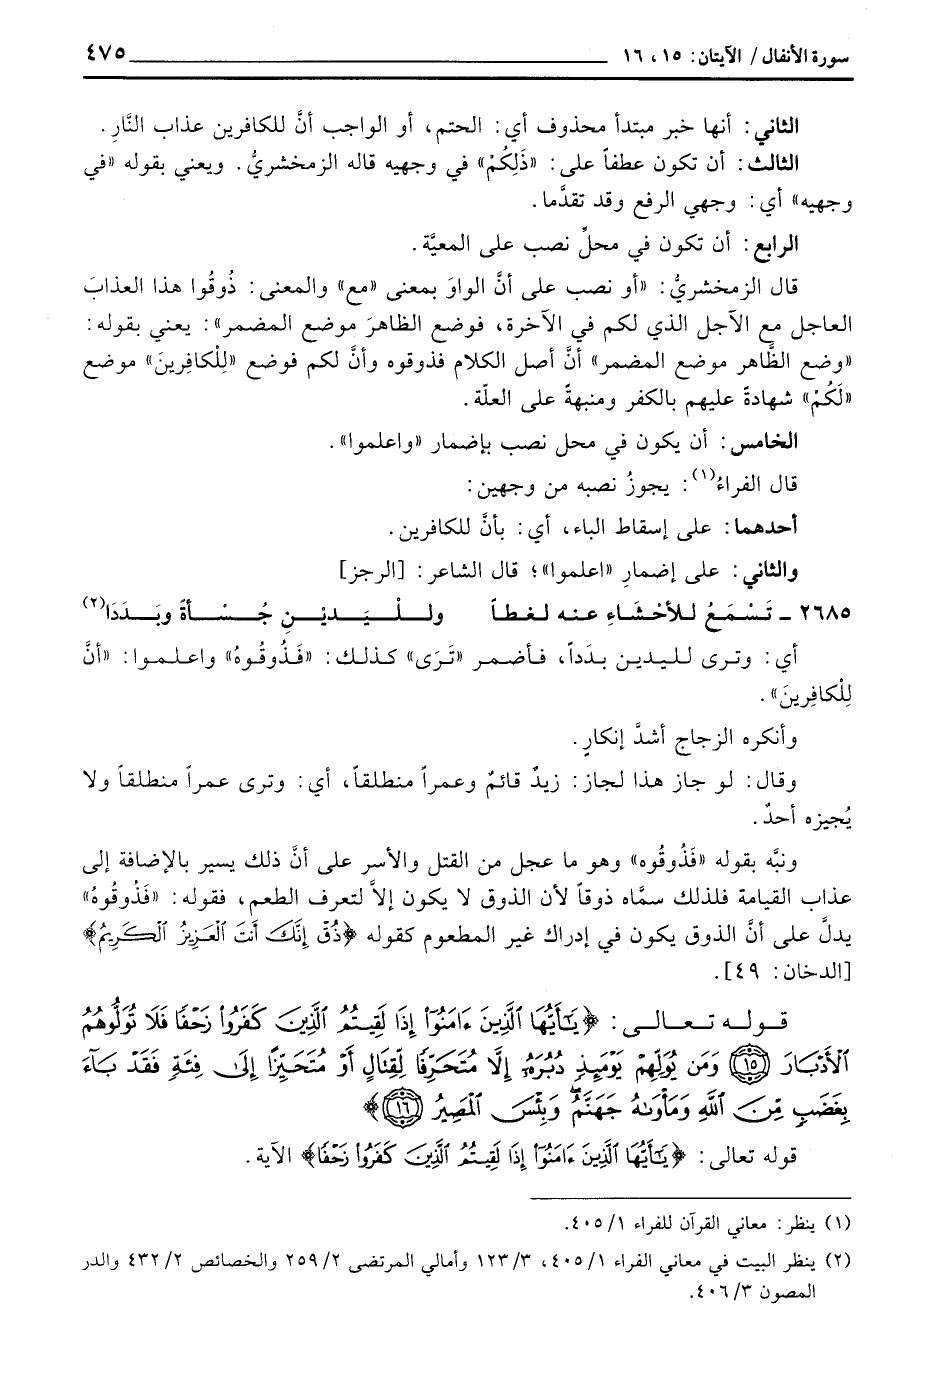 سورة الأنفال/ الآيتان: ١٥، ١٦ ٤٧٥
الثاني: أنها خبر مبتدأ محذوف أي: الحتم، أو الواجب أنَّ للكافرين عذاب النَّارِ.
الثالث: أن تكون عطفاً على: «ذَلِكُمْ» في وجهيه قاله الزمخشريُّ. ويعني بقوله «في
وجهيه» أي: وجهي الرفع وقد تقدَّما.
الرابع: أن تكون في محلِّ نصب على المعيَّة.
قال الزمخشريُّ: «أو نصب على أنَّ الواوَ بمعنى «مع» والمعنى: ذُوقُوا هذا العذابَ
العاجل مع الآجل الذي لكم في الآخرة، فوضع الظاهرَ موضع المضمر»: يعني بقوله:
«وضع الظَّاهر موضع المضمر» أنَّ أصل الكلام فذوقوه وأنَّ لكم فوضع «لِلْكافِرينَ» موضع
«لَكُمْ» شهادةً عليهم بالكفر ومنبهةً على العلّة.
الخامس: أن يكون في محل نصب بإضمار «واعلموا».
قال الفراءُ(١): يجوزُ نصبه من وجهين:
أحدهما: على إسقاط الباء، أي: بأنَّ للكافرين.
والثاني: على إضمارِ «اعلموا»؛ قال الشاعر: [الرجز]
٢٦٨٥ ـ تَسْمَعُ للأحْشَاءِ عنه لغطاً وللْيَديْنِ جُسْأةً وبَدَدَا(٢)
أي: وترى لليدين بدَداً، فأضمر «تَرَى» كذلك: «فَذُوقُوهُ» واعلموا: «أنَّ
لِلْكافِرينَ».
وأنكره الزجاج أشدَّ إنكارٍ.
وقال: لو جاز هذا لجاز: زيدٌ قائمٌ وعمراً منطلقاً، أي: وترى عمراً منطلقاً ولا
يُجيزه أحدٌ.
ونبَّه بقوله «فَذُوقُوه» وهو ما عجل من القتل والأسر على أنَّ ذلك يسير بالإضافة إلى
عذاب القيامة فلذلك سمَّاه ذوقاً لأن الذوق لا يكون إلاَّ لتعرف الطعم، فقوله: «فَذُوقُوهُ»
يدلَّ على أنَّ الذوق يكون في إدراك غير المطعوم كقوله ﴿ذُقْ إِنَّكَ أَنتَ ٱلْعَزِيزُ ٱلْكَرِيمُ﴾
[الدخان: ٤٩].
قوله تعالى: ﴿يَٰٓأَيُّهَا ٱلَّذِينَ ءَامَنُوٓا۟ إِذَا لَقِيتُمُ ٱلَّذِينَ كَفَرُوا۟ زَحْفًا فَلَا تُوَلُّوهُمُ
ٱلْأَدْبَارَ ﴿١٥﴾ وَمَن يُوَلِّهِمْ يَوْمَئِذٍ دُبُرَهُۥٓ إِلَّا مُتَحَرِّفًا لِّقِتَالٍ أَوْ مُتَحَيِّزًا إِلَىٰ فِئَةٍ فَقَدْ بَآءَ
بِغَضَبٍ مِّنَ ٱللَّهِ وَمَأْوَىٰهُ جَهَنَّمُ وَبِئْسَ ٱلْمَصِيرُ ﴿١٦﴾﴾
قوله تعالى: ﴿يَٰٓأَيُّهَا ٱلَّذِينَ ءَامَنُوٓا۟ إِذَا لَقِيتُمُ ٱلَّذِينَ كَفَرُوا۟ زَحْفًا﴾ الآية.
(١) ينظر: معاني القرآن للفراء ٤٠٥/١.
(٢) ينظر البيت في معاني الفراء ٤٠٥/١، ١٢٣/٣ وأمالي المرتضى ٢٥٩/٢ والخصائص ٤٣٢/٢ والدر
المصون ٤٠٦/٣.